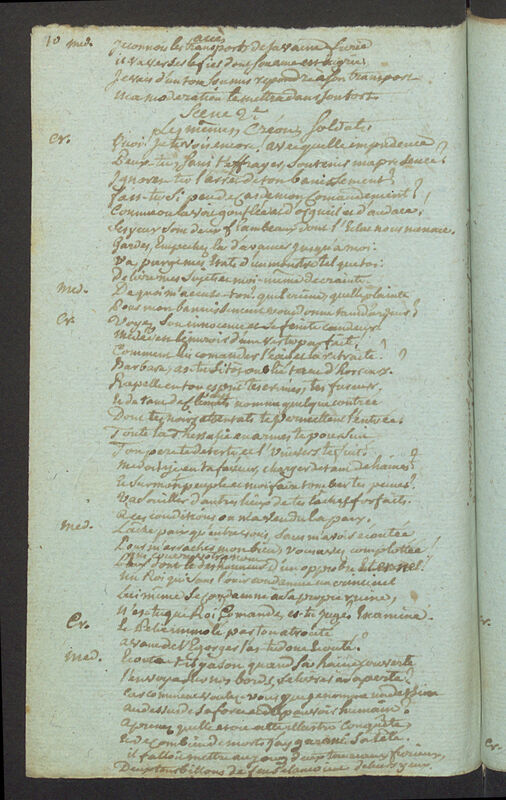 10 med. je connois les accès de sa vaine furie
et sa verse les fiers dont son ame est aigrie
je vais d'un ton soumis repondre a son transport
et ma moderation le mettra dans son tort
Scene 2e
Les mêmes, Créon, Soldats
Cr. Quoi! je te vois encore! avec quelle impudence
Peux-tu, sans t'effrayer, soutenir ma presence?
Ignores tu l'arret de ton banissement?
Fais-tu si peu de cas de mon comandement?
Comme on la voit gonflée et d'orgueil et d'audace;
Ses yeux sont deux flambeaux dont l'éclat nous menace.
Gardes, Empechez la d'avancer jusqu'a moi.
Va, purge mes Etats d'un monstre tel que toi.
Delivre mes sujets et moi-même de crainte.
Med. De quoi m'accuse-t-on, quel crime, quelle plainte
Pour mon banissement vous donne tant d'ardeur?
Cr. Voyez son innocence et sa feinte candeur
Medée est le miroir d'une vertu parfaite!
Comment lui comander l'exil et la retraite?
Barbare, as-tu si tot oublié tant d'horreurs.
Rapelle en ton esprit tes crimes, tes fureurs,
Et de tant de climats nomme quelque contrée
Dont tes noirs attentats te permettent l'entrée.
Toute la Thessalie en armes te poursuit
Ton pere te deteste, et l'univers te fuit.
me dois-je en ta faveur, charger de tant de haines?
et sur mon peuple et moi faire tomber tes peines?
Va souiller d'autres lieux de tes lâches forfaits.
A ces conditions on m'a rendu la paix.
Med. Lâche paix qu'entre vous, sans m'avoir écoutée
Pour m'arracher mon bien, vous avez complottée!
dont le deshonneur d'un opprobre Eternel!
Un Roi qui sans l'ouir condamne un criminel
Lui même se condamne a sa propre ruine,
si c'est que Roi Comande, es-tu juge? Examine.
Cr. le Pelie immolé par ton atroce
avant de t'Egorger l'as-tu donc ecouté?
Med. Ecouta-t-il Jason quand sa haine couverte
l'envoya sur nos bords se livrer a sa perte?
Car comment voulez-vous que je nomme un dessein
au dessus de sa force et du pouvoir humain?
Aprenez quelle etoit cette illustre conquête,
Et de combien de morts j'ay garanti sa tête.
il falloit mettre au joug deux taureaux furieux,
Deux tourbillons de feux s'elancoient de leurs yeux,